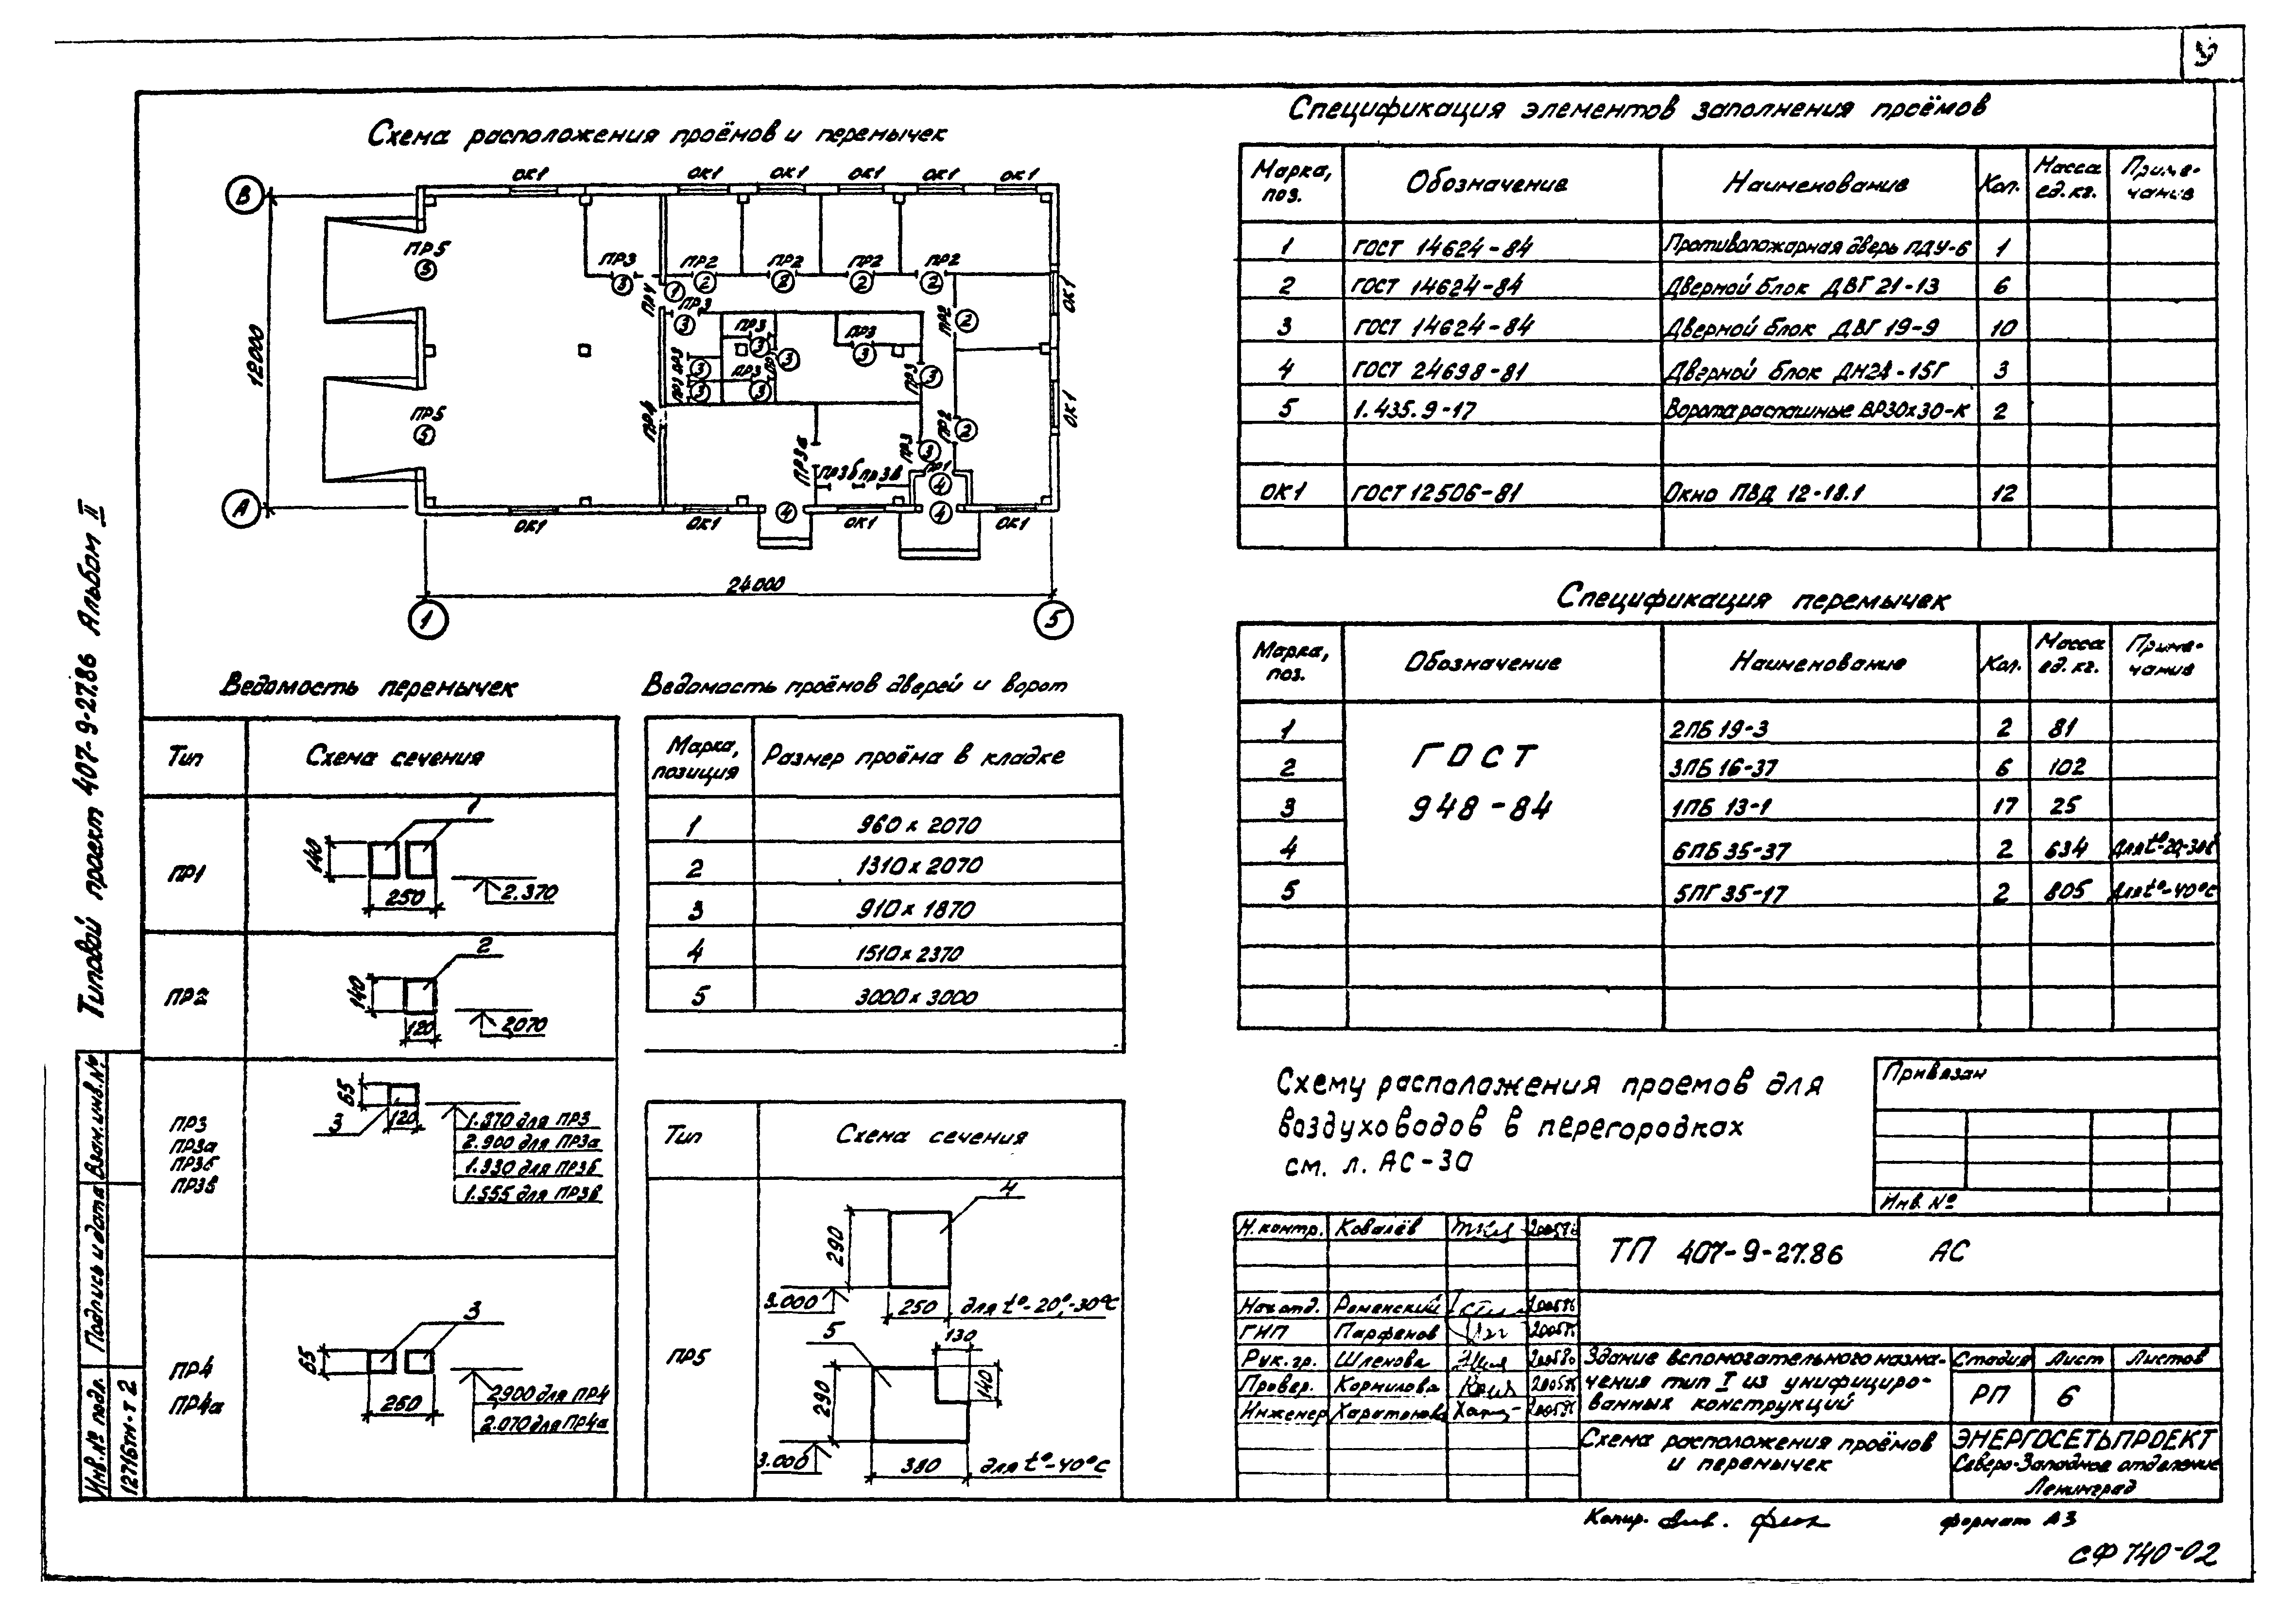 Схема расположения проёмов и перемычек
ОК1 ОК1 ОК1 ОК1 ОК1 ОК1
В
ПР5
5
ПР3 ПР2 ПР2 ПР2 ПР2
3 2 2 2 2
ПР4 1 ПР3 3
ОК1
ПР2 2
12000
ПР3 3 ПР3 3
ПР3 3 ПР3 3
ПР3 3 ПР3 3
ПР3 3
ПР5
5
ПР4
ОК1
ПР2 2
ПР3 3
ПР3б ПР3в
ПР1
4
А
ОК1 ОК1 4 ОК1 4 ОК1
24000
1 5
Ведомость перемычек
Тип Схема сечения
ПР1 140 250 1 2.370
ПР2 140 120 2 2,070
ПР3
ПР3а
ПР3б
ПР3в
65 120 3
1.870 для ПР3
2.900 для ПР3а
1.930 для ПР3б
1.555 для ПР3в
ПР4
ПР4а
65 250 3
2,900 для ПР4
2.070 для ПР4а
Ведомость проёмов дверей и ворот
Марка, позиция Размер проёма в кладке
1 960 х 2070
2 1310 х 2070
3 910 х 1870
4 1510 х 2370
5 3000 х 3000
Тип Схема сечения
ПР5
4
290
3.000 250 для t°-20°,-30°С
5 130
290 140
3.000 380 для t°-40°С
Спецификация элементов заполнения проёмов
Марка, поз. Обозначение Наименование Кол. Масса ед. кг. Приме-чание
1 ГОСТ 14624-84 Противопожарная дверь ПДУ-6 1
2 ГОСТ 14624-84 Дверной блок ДВГ 21-13 6
3 ГОСТ 14624-84 Дверной блок ДВГ 19-9 10
4 ГОСТ 24698-81 Дверной блок ДН24-15Г 3
5 1.435.9-17 Ворота распашные ВР30х30-К 2
ОК1 ГОСТ 12506-81 Окно ПВД 12-18.1 12
Спецификация перемычек
Марка, поз. Обозначение Наименование Кол. Масса ед. кг. Приме-чание
ГОСТ
948-84
1 2ПБ 19-3 2 81
2 3ПБ 16-37 6 102
3 1ПБ 13-1 17 25
4 6ПБ 35-37 2 634
5 5ПГ 35-17 2 805 Для t°-40°С
Схему расположения проемов для
воздуховодов в перегородках
см. л. АС-30
Привязан
Инв. №
Н.контр. Ковалёв
Нач.отд. Роменский
ГИП Парфенов
Рук. гр. Шленова
Провер. Корнилова
Инженер Харитонова
ТП 407-9-27.86 АС
Здание вспомогательного назна-
чения тип I из унифициро-
ванных конструкций
Стадия Лист Листов
РП 6
Схема расположения проёмов
и перемычек
ЭНЕРГОСЕТЬПРОЕКТ
Северо-Западное отделение
Ленинград
Копир.
формат А3
СФ 740-02
Типовой проект 407-9-27.86 Альбом II
Взам.инв.№
Подпись и дата
Инв.№ подл.
12716тм-т 2